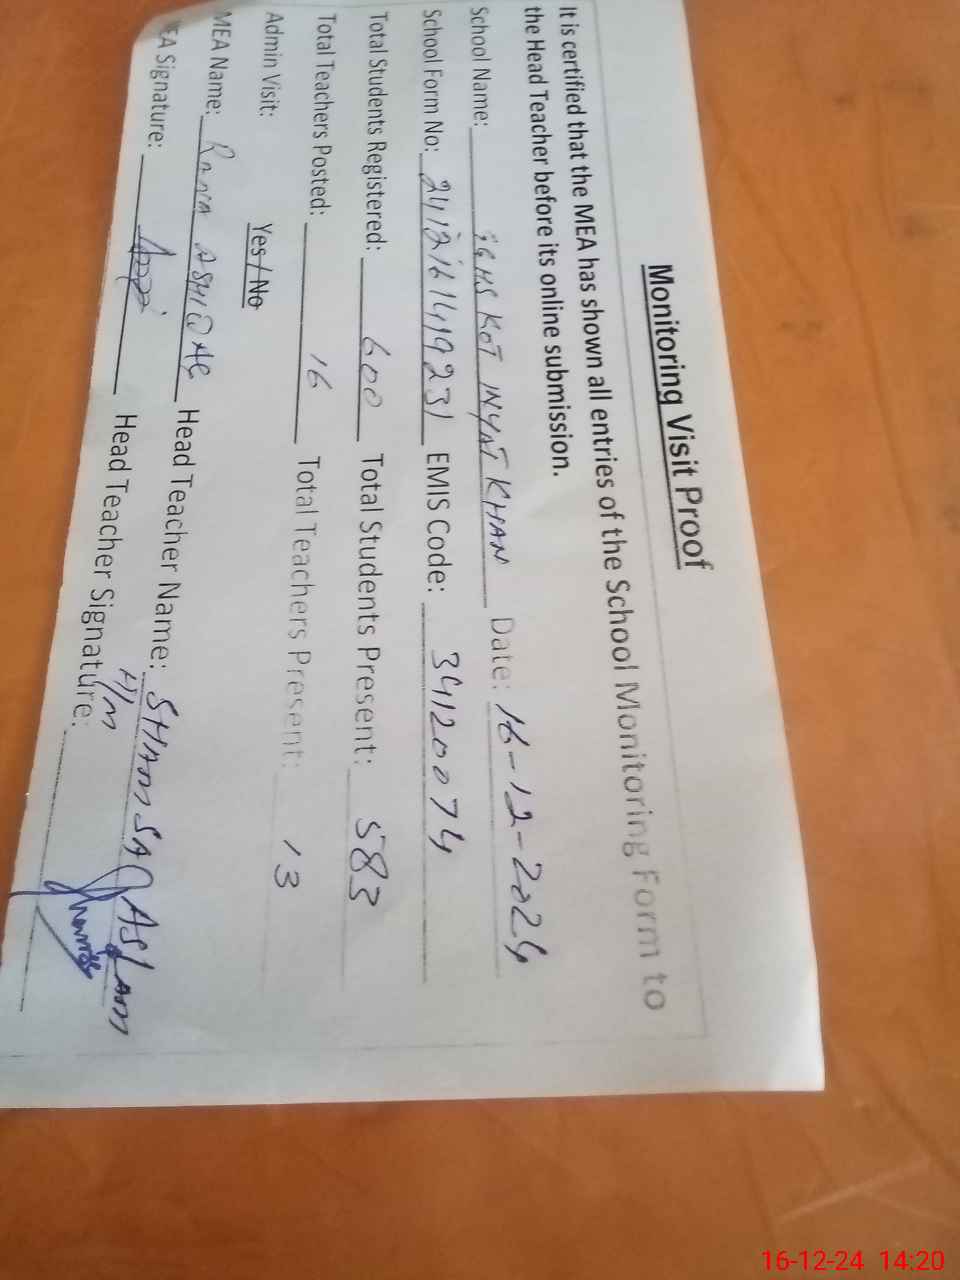 Monitoring Visit Proof
It is certified that the MEA has shown all entries of the School Monitoring Form to
the Head Teacher before its online submission.
School Name: GGHS KOT INYAT KHAN Date: 16-12-2024
School Form No: EMIS Code: 34120074
Total Students Registered: 600 Total Students Present: 583
Total Teachers Posted: 16 Total Teachers Present: 13
Admin Visit: Yes/No
MEA Name: Rana Head Teacher Name: ASLAM
EA Signature: Head Teacher Signature:
H/M
16-12-24 14:20